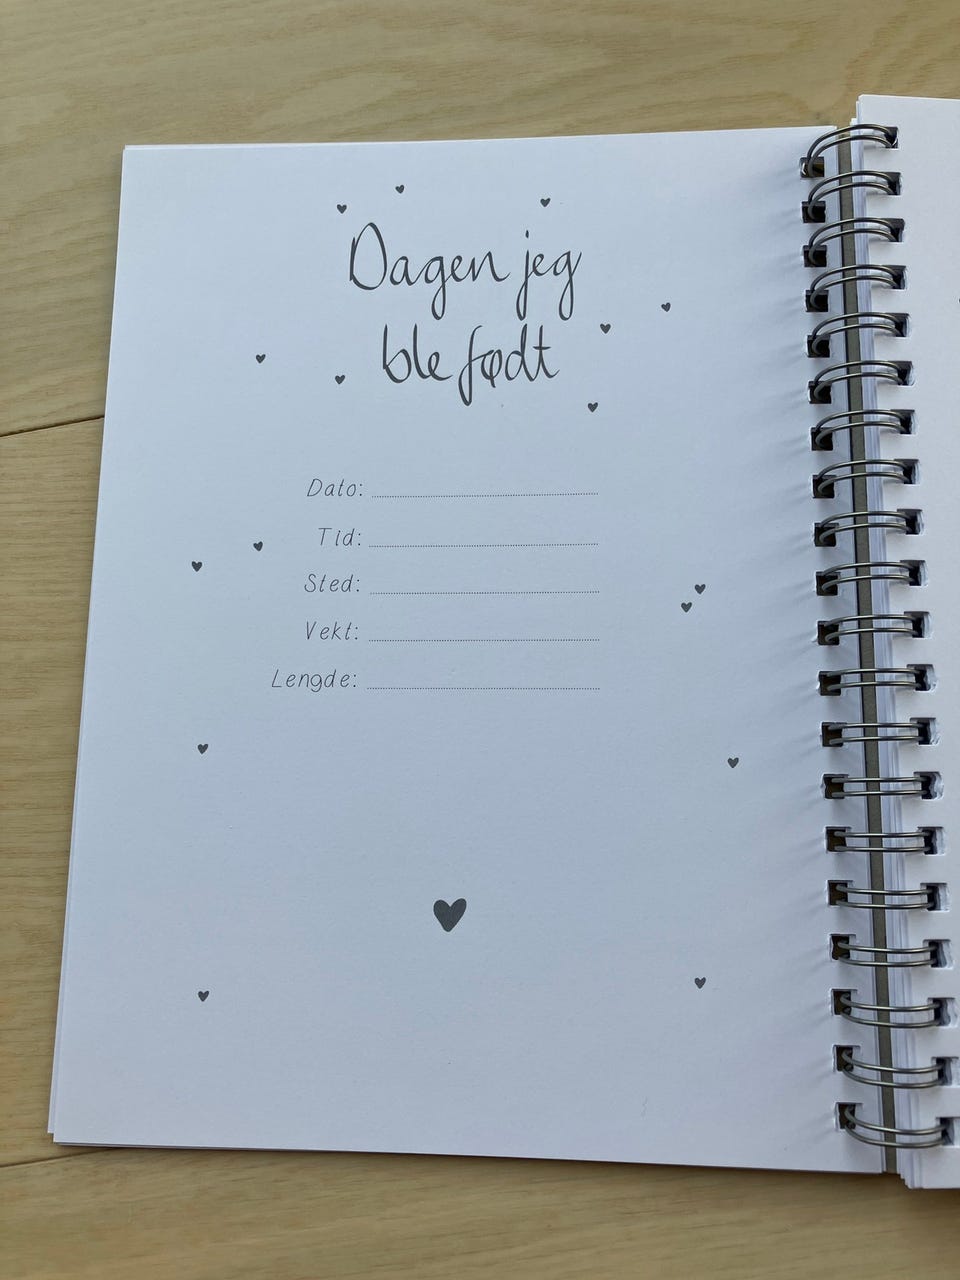 Dagen jeg
ble født
Dato:
Tid:
Sted:
Vekt:
Lengde: